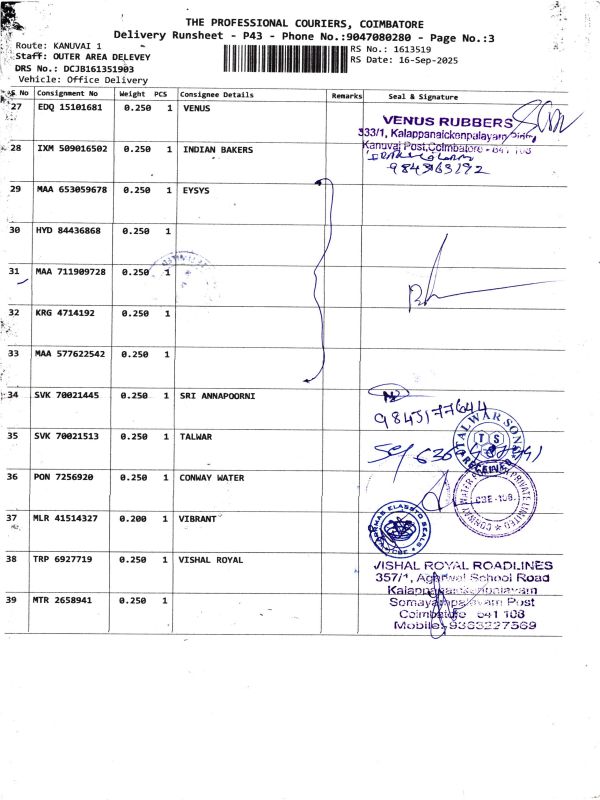 THE PROFESSIONAL COURIERS, COIMBATORE
Delivery Runsheet - P43 - Phone No.:9047080280 - Page No.:3
Route: KANUVAI 1
RS No.: 1613519
Staff: OUTER AREA DELEVEY
RS Date: 16-Sep-2025
DRS No.: DCJB161351903
Vehicle: Office Delivery
S. No Consignment No Weight PCS Consignee Details Remarks Seal & Signature
27 EDQ 15101681 0.250 1 VENUS
VENUS RUBBERS
333/1, Kalappanaickenpalayam
Kanuvai Post, Coimbatore - 641 108
9843163192
28 IXM 509016502 0.250 1 INDIAN BAKERS
29 MAA 653059678 0.250 1 EYSYS
30 HYD 84436868 0.250 1
31 MAA 711909728 0.250 1
32 KRG 4714192 0.250 1
33 MAA 577622542 0.250 1
34 SVK 70021445 0.250 1 SRI ANNAPOORNI
9845177644
35 SVK 70021513 0.250 1 TALWAR
TALWAR SONS
T S
RECEIVED
36 PON 7256920 0.250 1 CONWAY WATER
CONWAY WATER PRIVATE LIMITED
CBE-108.
37 MLR 41514327 0.200 1 VIBRANT
ELASSTO SEALS
CBE
38 TRP 6927719 0.250 1 VISHAL ROYAL
VISHAL ROYAL ROADLINES
357/1, Agarwal School Road
Kalappanaickenpalayam
39 MTR 2658941 0.250 1
Somayampalayam Post
Coimbatore 641 108
Mobile: 9363227569